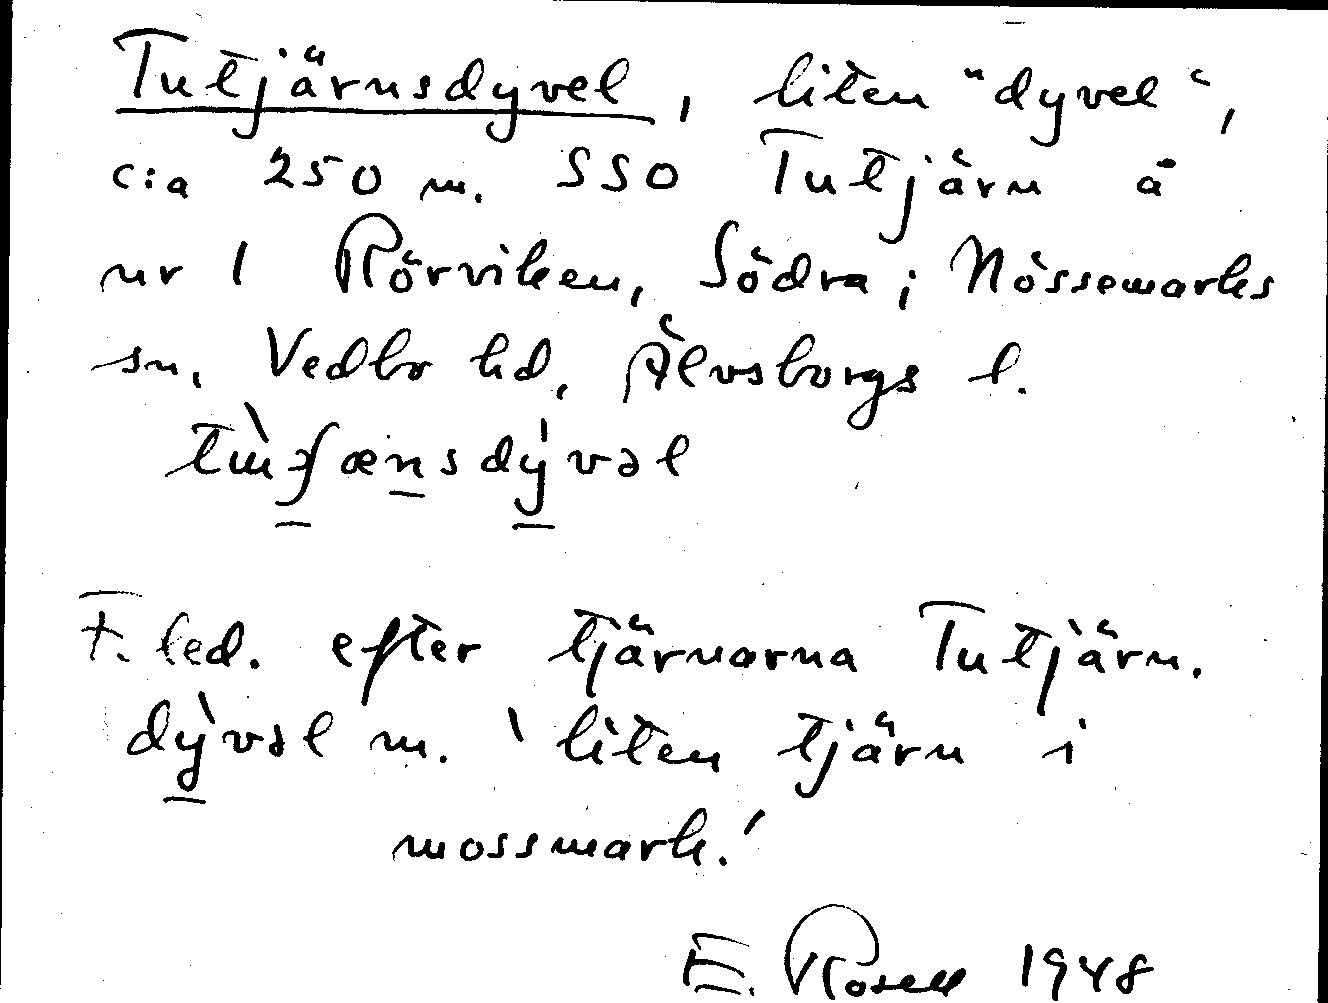 Tutjärnsdyvel, liten "dyvel",
c:a 250 m. SSO Tutjärn å
nr 1 Rörviken, Södra i Nössemarks
sn, Vedbo hd, Älvsborgs l.
F. led. efter tjärnarna Tutjärn.
dỳvəl m. 'liten tjärn i
mossmark.'
E. Rosell 1948